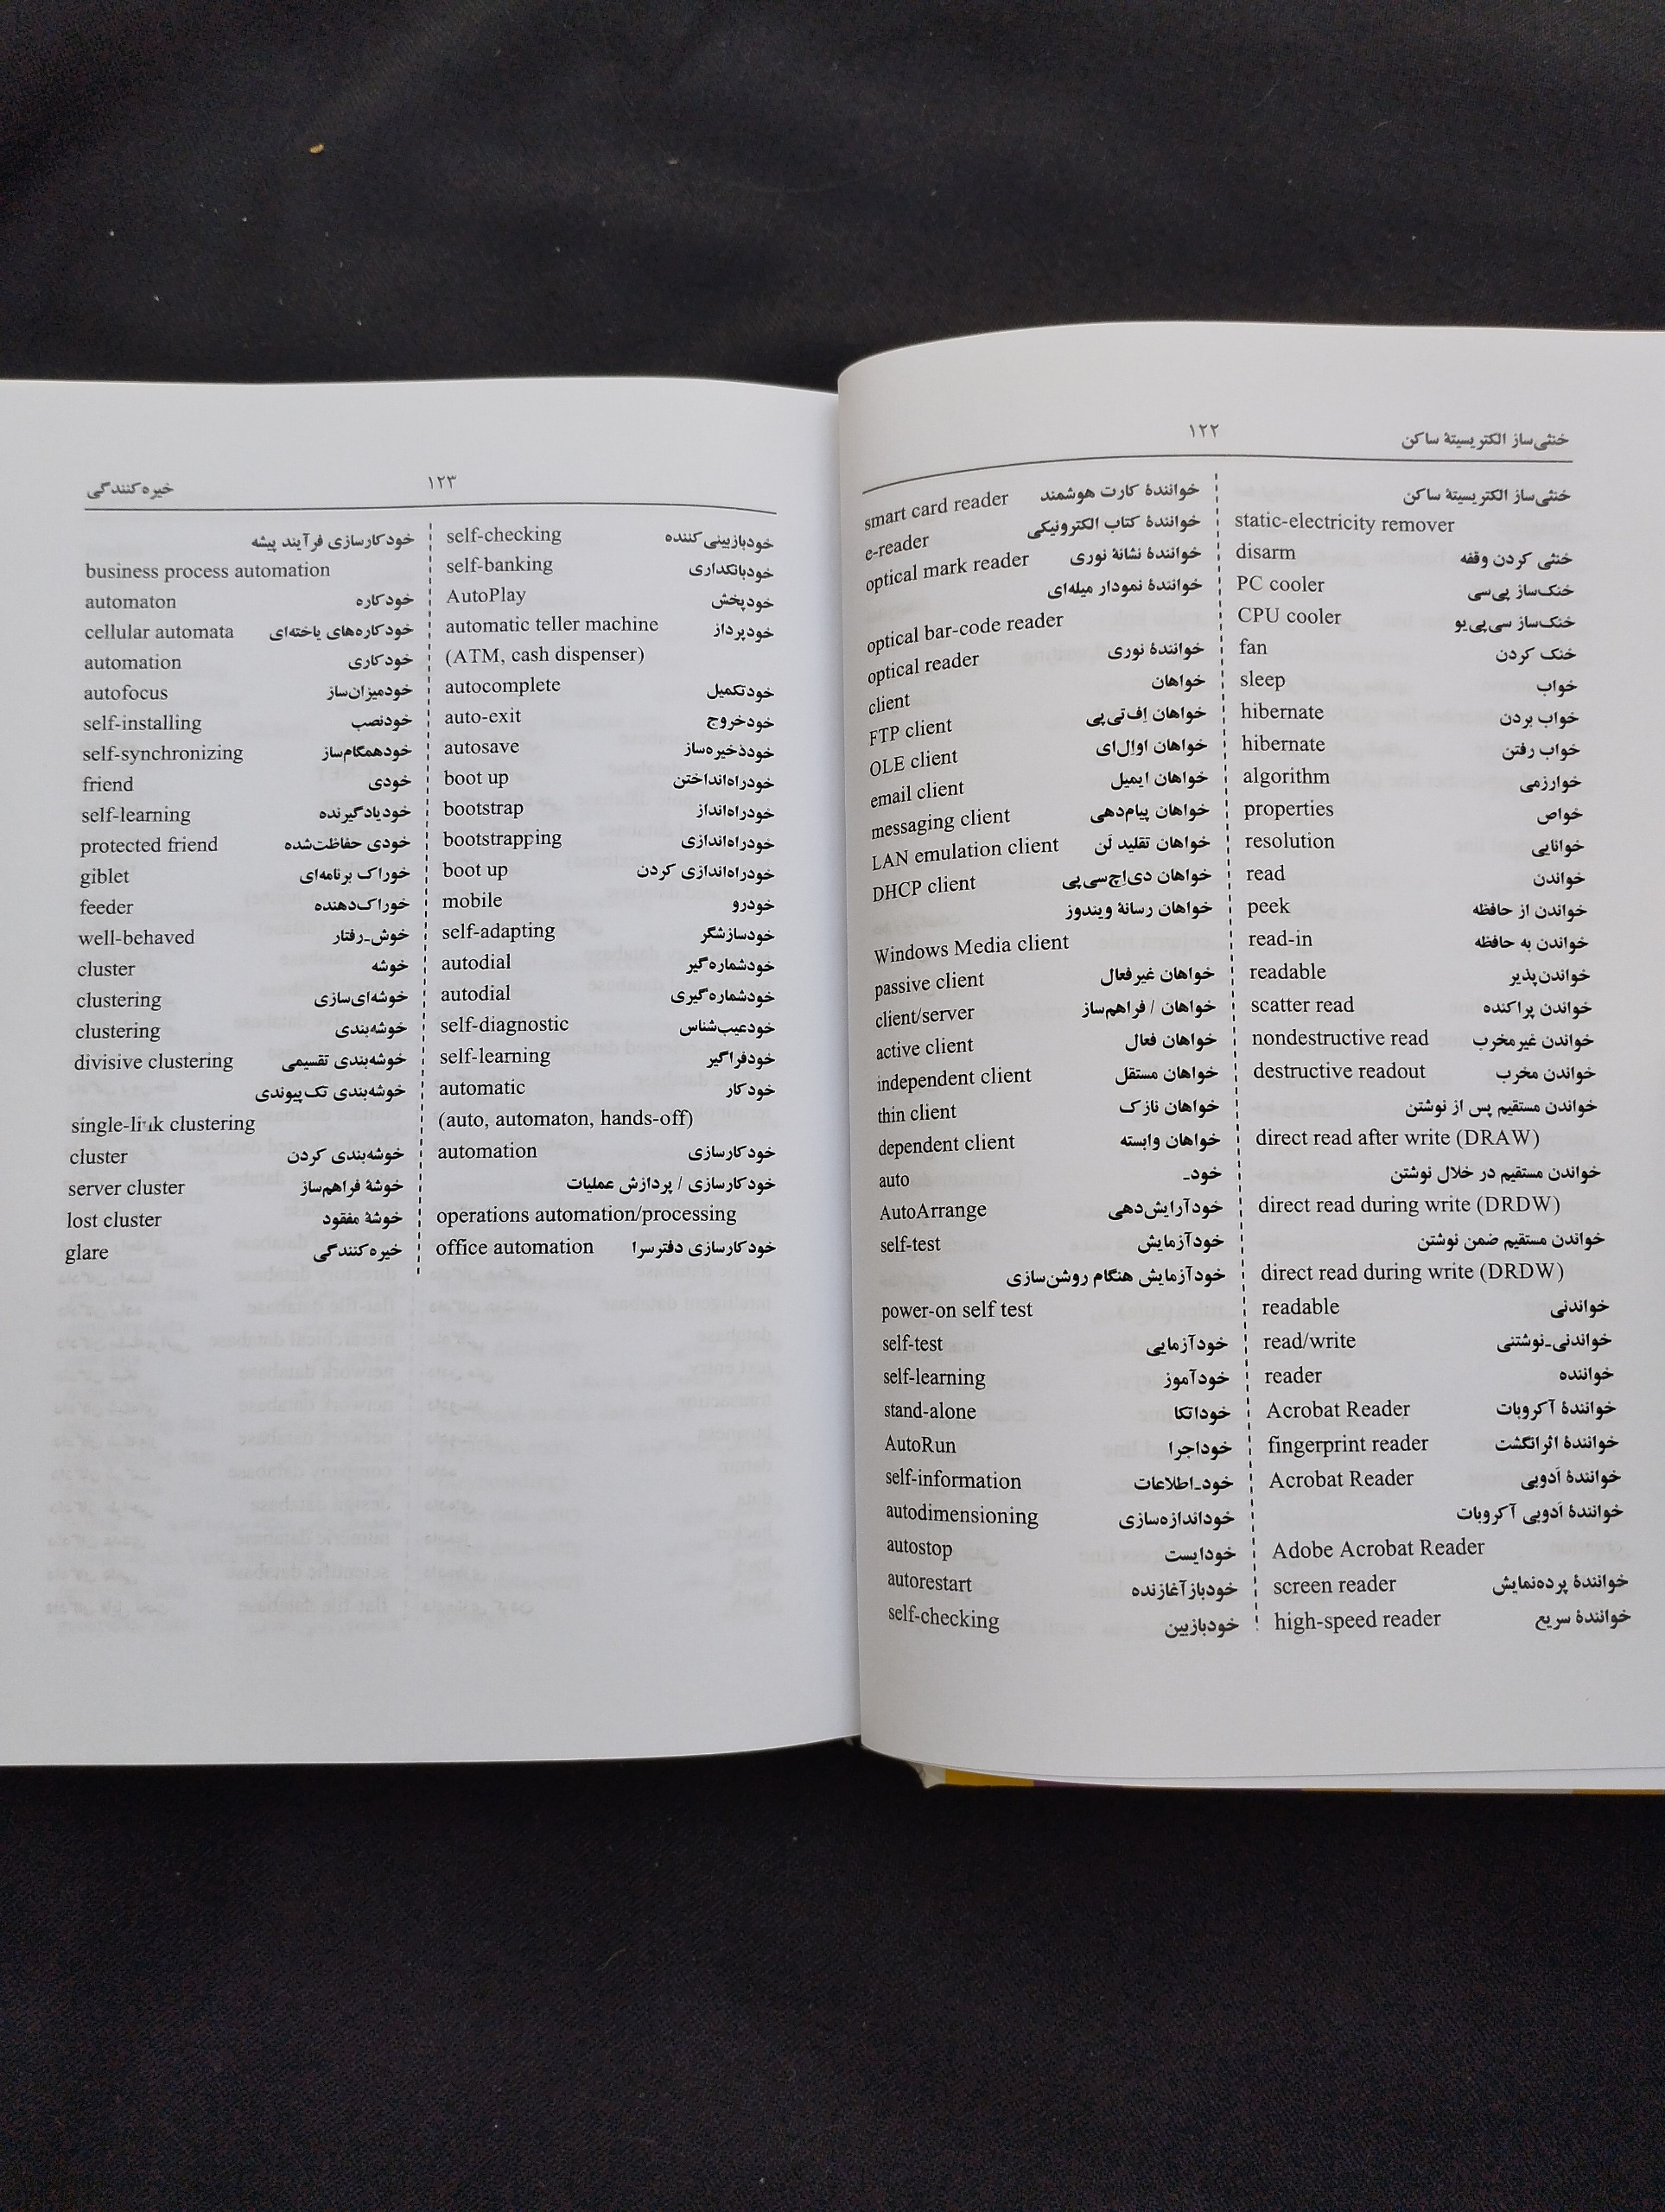 خنثی‌ساز الکتریسیتهٔ ساکن ۱۲۲
خنثی‌ساز الکتریسیتهٔ ساکن
static-electricity remover
خنثی کردن وقفه disarm
خنک‌ساز پی‌سی PC cooler
خنک‌ساز سی‌پی‌یو CPU cooler
خنک کردن fan
خواب sleep
خواب بردن hibernate
خواب رفتن hibernate
خوارزمی algorithm
خواص properties
خوانایی resolution
خواندن read
خواندن از حافظه peek
خواندن به حافظه read-in
خواندن‌پذیر readable
خواندن پراکنده scatter read
خواندن غیرمخرب nondestructive read
خواندن مخرب destructive readout
خواندن مستقیم پس از نوشتن
direct read after write (DRAW)
خواندن مستقیم در خلال نوشتن
direct read during write (DRDW)
خواندن مستقیم ضمن نوشتن
direct read during write (DRDW)
خواندنی readable
خواندنی‌ـ‌نوشتنی read/write
خواننده reader
خوانندهٔ آکروبات Acrobat Reader
خوانندهٔ اثرانگشت fingerprint reader
خوانندهٔ اَدوبی Acrobat Reader
خوانندهٔ اَدوبی آکروبات
Adobe Acrobat Reader
خوانندهٔ پرده‌نمایش screen reader
خوانندهٔ سریع high-speed reader
خوانندهٔ کارت هوشمند smart card reader
خوانندهٔ کتاب الکترونیکی e-reader
خوانندهٔ نشانهٔ نوری optical mark reader
خوانندهٔ نمودار میله‌ای
optical bar-code reader
خوانندهٔ نوری optical reader
خواهان client
خواهان اِف‌تی‌پی FTP client
خواهان اواِل‌ای OLE client
خواهان ایمیل email client
خواهان پیام‌دهی messaging client
خواهان تقلید لَن LAN emulation client
خواهان دی‌اِچ‌سی‌پی DHCP client
خواهان رسانهٔ ویندوز
Windows Media client
خواهان غیرفعال passive client
خواهان / فراهم‌ساز client/server
خواهان فعال active client
خواهان مستقل independent client
خواهان نازک thin client
خواهان وابسته dependent client
خودـ auto
خودآرایش‌دهی AutoArrange
خودآزمایش self-test
خودآزمایش هنگام روشن‌سازی
power-on self test
خودآزمایی self-test
خودآموز self-learning
خوداتکا stand-alone
خوداجرا AutoRun
خودـ‌اطلاعات self-information
خوداندازه‌سازی autodimensioning
خودایست autostop
خودبازآغازنده autorestart
خودبازبین self-checking
۱۲۳ خیره‌کنندگی
خودبازبینی‌کننده self-checking
خودبانکداری self-banking
خودپخش AutoPlay
خودپرداز automatic teller machine
(ATM, cash dispenser)
خودتکمیل autocomplete
خودخروج auto-exit
خودذخیره‌ساز autosave
خودراه‌انداختن boot up
خودراه‌انداز bootstrap
خودراه‌اندازی bootstrapping
خودراه‌اندازی کردن boot up
خودرو mobile
خودسازشگر self-adapting
خودشماره‌گیر autodial
خودشماره‌گیری autodial
خودعیب‌شناس self-diagnostic
خودفراگیر self-learning
خودکار automatic
(auto, automaton, hands-off)
خودکارسازی automation
خودکارسازی / پردازش عملیات
operations automation/processing
خودکارسازی دفترسرا office automation
خودکارسازی فرآیند پیشه
business process automation
خودکاره automaton
خودکاره‌های یاخته‌ای cellular automata
خودکاری automation
خودمیزان‌ساز autofocus
خودنصب self-installing
خودهمگام‌ساز self-synchronizing
خودی friend
خودیادگیرنده self-learning
خودی حفاظت‌شده protected friend
خوراک برنامه‌ای giblet
خوراک‌دهنده feeder
خوش‌ـ‌رفتار well-behaved
خوشه cluster
خوشه‌ای‌سازی clustering
خوشه‌بندی clustering
خوشه‌بندی تقسیمی divisive clustering
خوشه‌بندی تک‌پیوندی
single-link clustering
خوشه‌بندی کردن cluster
خوشهٔ فراهم‌ساز server cluster
خوشهٔ مفقود lost cluster
خیره‌کنندگی glare